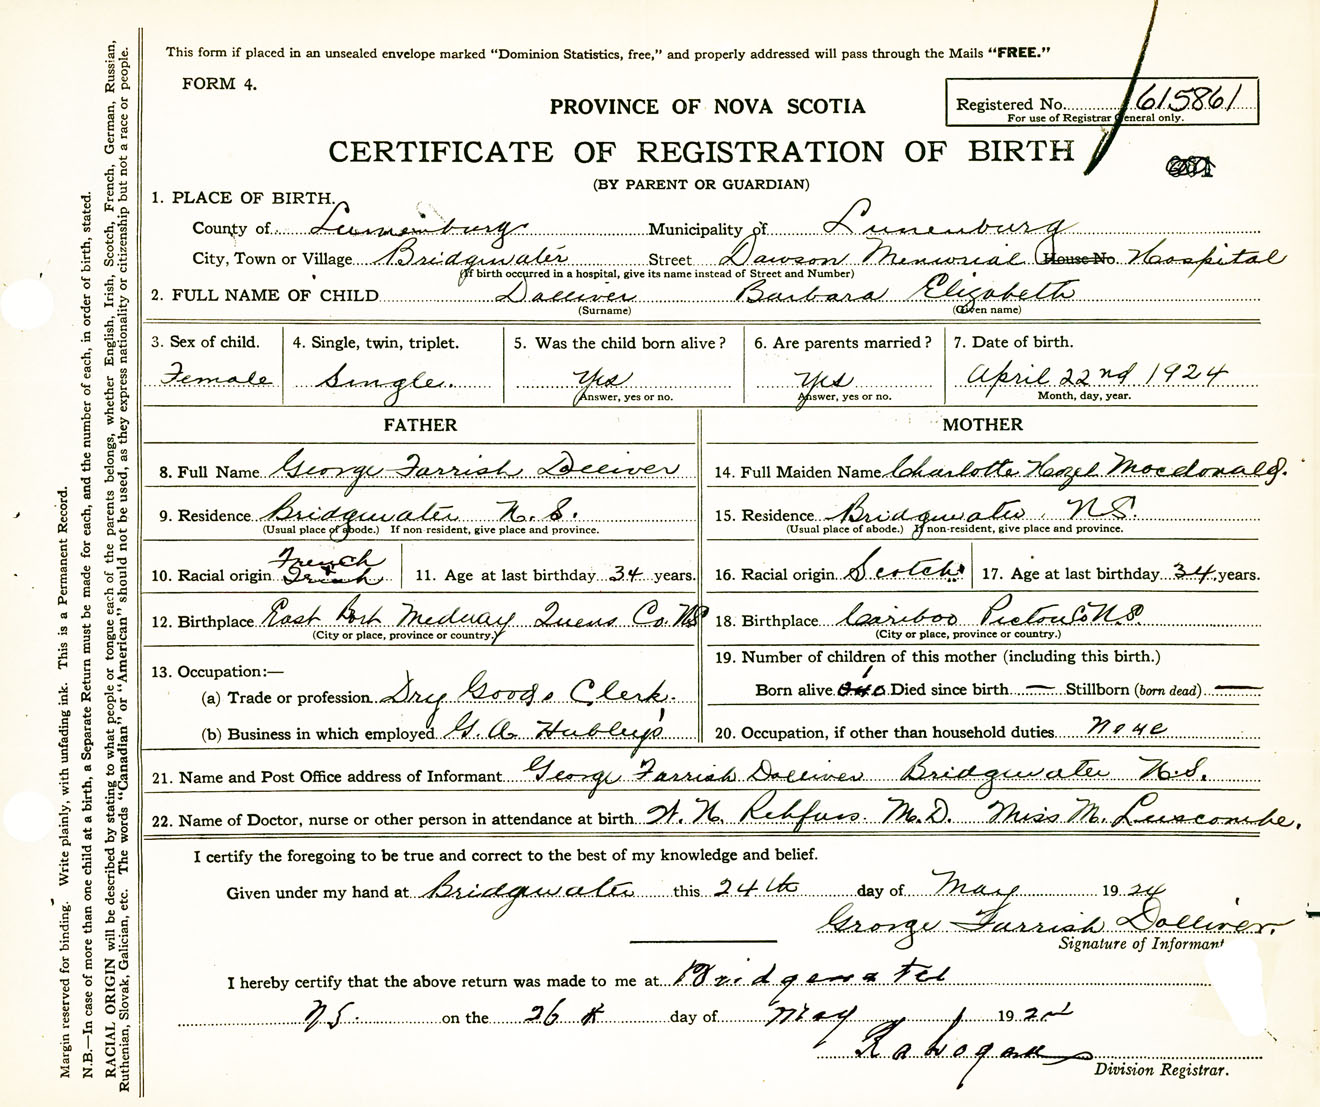 This form if placed in an unsealed envelope marked “Dominion Statistics, free,” and properly addressed will pass through the Mails “FREE.”
FORM 4.
PROVINCE OF NOVA SCOTIA
Registered No. 615861
For use of Registrar General only.
CERTIFICATE OF REGISTRATION OF BIRTH
(BY PARENT OR GUARDIAN)
1. PLACE OF BIRTH.
County of Lunenburg Municipality of Lunenburg
City, Town or Village Bridgwater Street Dawson Memorial House No. Hospital
(If birth occurred in a hospital, give its name instead of Street and Number)
2. FULL NAME OF CHILD Dolliver Barbara Elizabeth
(Surname) (Given name)
3. Sex of child. 4. Single, twin, triplet. 5. Was the child born alive? 6. Are parents married? 7. Date of birth.
Female Single. Yes Yes April 22nd 1924
Answer, yes or no. Answer, yes or no. Month, day, year.
FATHER MOTHER
8. Full Name George Farrish Dolliver 14. Full Maiden Name Charlotte Hazel Macdonald.
9. Residence Bridgwater N.S. 15. Residence Bridgwater N.S.
(Usual place of abode.) If non-resident, give place and province. (Usual place of abode.) If non-resident, give place and province.
French
10. Racial origin Irish 11. Age at last birthday 34 years. 16. Racial origin Scotch 17. Age at last birthday 34 years.
12. Birthplace East Port Medway Quens Co. N.S 18. Birthplace Cariboo Pictou Co N.S.
(City or place, province or country.) (City or place, province or country.)
13. Occupation:—
(a) Trade or profession Dry Goods Clerk.
(b) Business in which employed G. A. Hubley's
19. Number of children of this mother (including this birth.)
1
Born alive Died since birth — Stillborn (born dead) —
20. Occupation, if other than household duties None
21. Name and Post Office address of Informant George Farrish Dolliver Bridgwater N.S.
22. Name of Doctor, nurse or other person in attendance at birth W. N. Rehfuss. M.D. Miss M. Luscombe.
I certify the foregoing to be true and correct to the best of my knowledge and belief.
Given under my hand at Bridgwater this 24th day of May 1924
George Farrish Dolliver.
Signature of Informant
I hereby certify that the above return was made to me at Bridgewater
NS. on the 26 day of May 192
Division Registrar.
Margin reserved for binding. Write plainly, with unfading ink. This is a Permanent Record.
N.B.—In case of more than one child at a birth, a Separate Return must be made for each, and the number of each, in order of birth, stated.
RACIAL ORIGIN will be described by stating to what people or tongue each of the parents belongs, whether English, Irish, Scotch, French, German, Russian,
Ruthenian, Slovak, Galician, etc. The words “Canadian” or “American” should not be used, as they express nationality or citizenship but not a race or people.